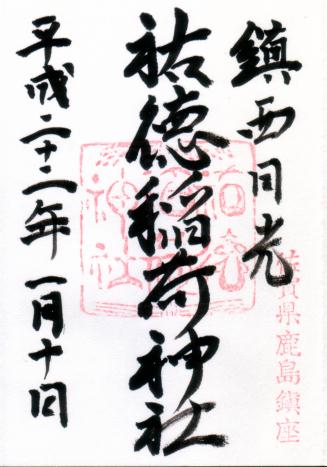 鎮西日光
佐賀県鹿島鎮座
祐徳稲荷神社
平成二十二年一月十日